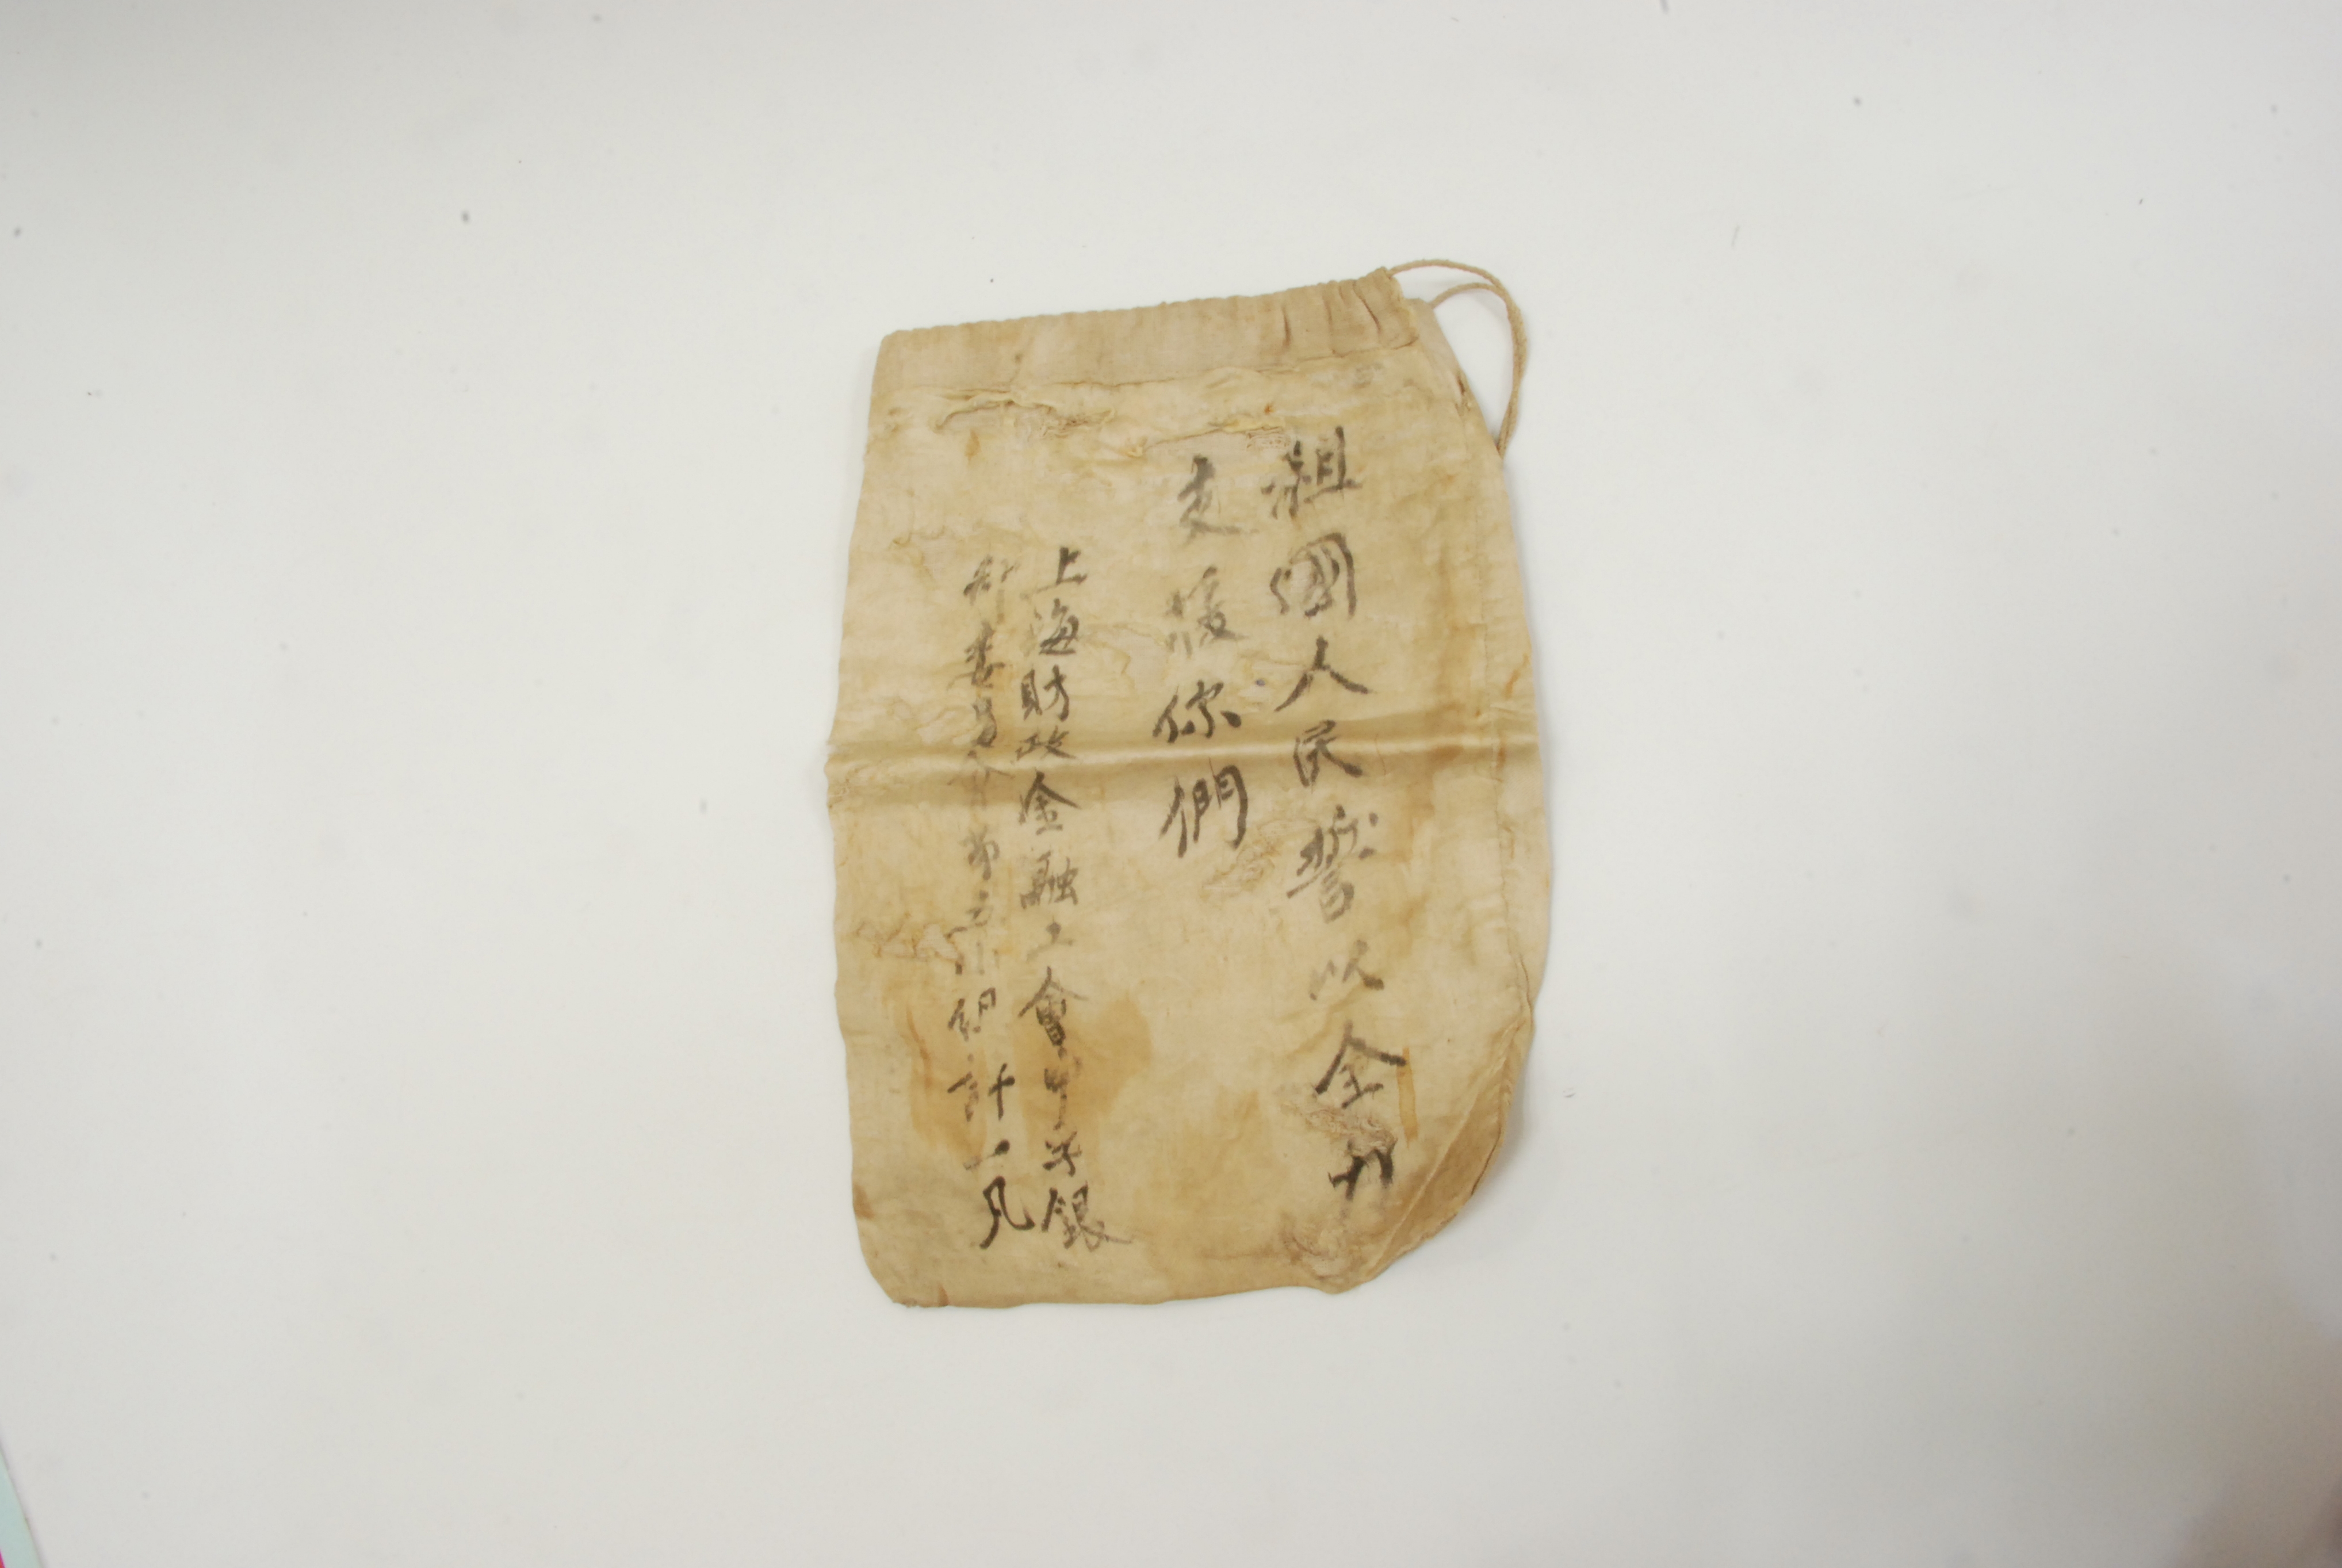 祖國人民誓以全力
支援你們
上海財政金融工會中孚銀
部委員會第三小組計一凡